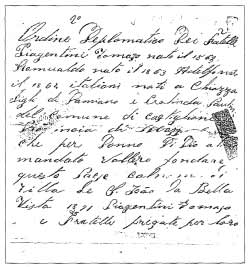 2º
Ordine Diplomatico Dei Fratelli
Piagentini Tomaso nato il 1863
Romualdo nato il 1863
il 1864 Italiani nati a Chiozza
Figli di Damiano e
del Comune di Castiglione
Provincia di
che per Donno Di Dio a
mandato fondare
questo Paese
Villa de S João da Bella
Vista 1891 Piagentini Tomaso
e Fratelli pregate per loro